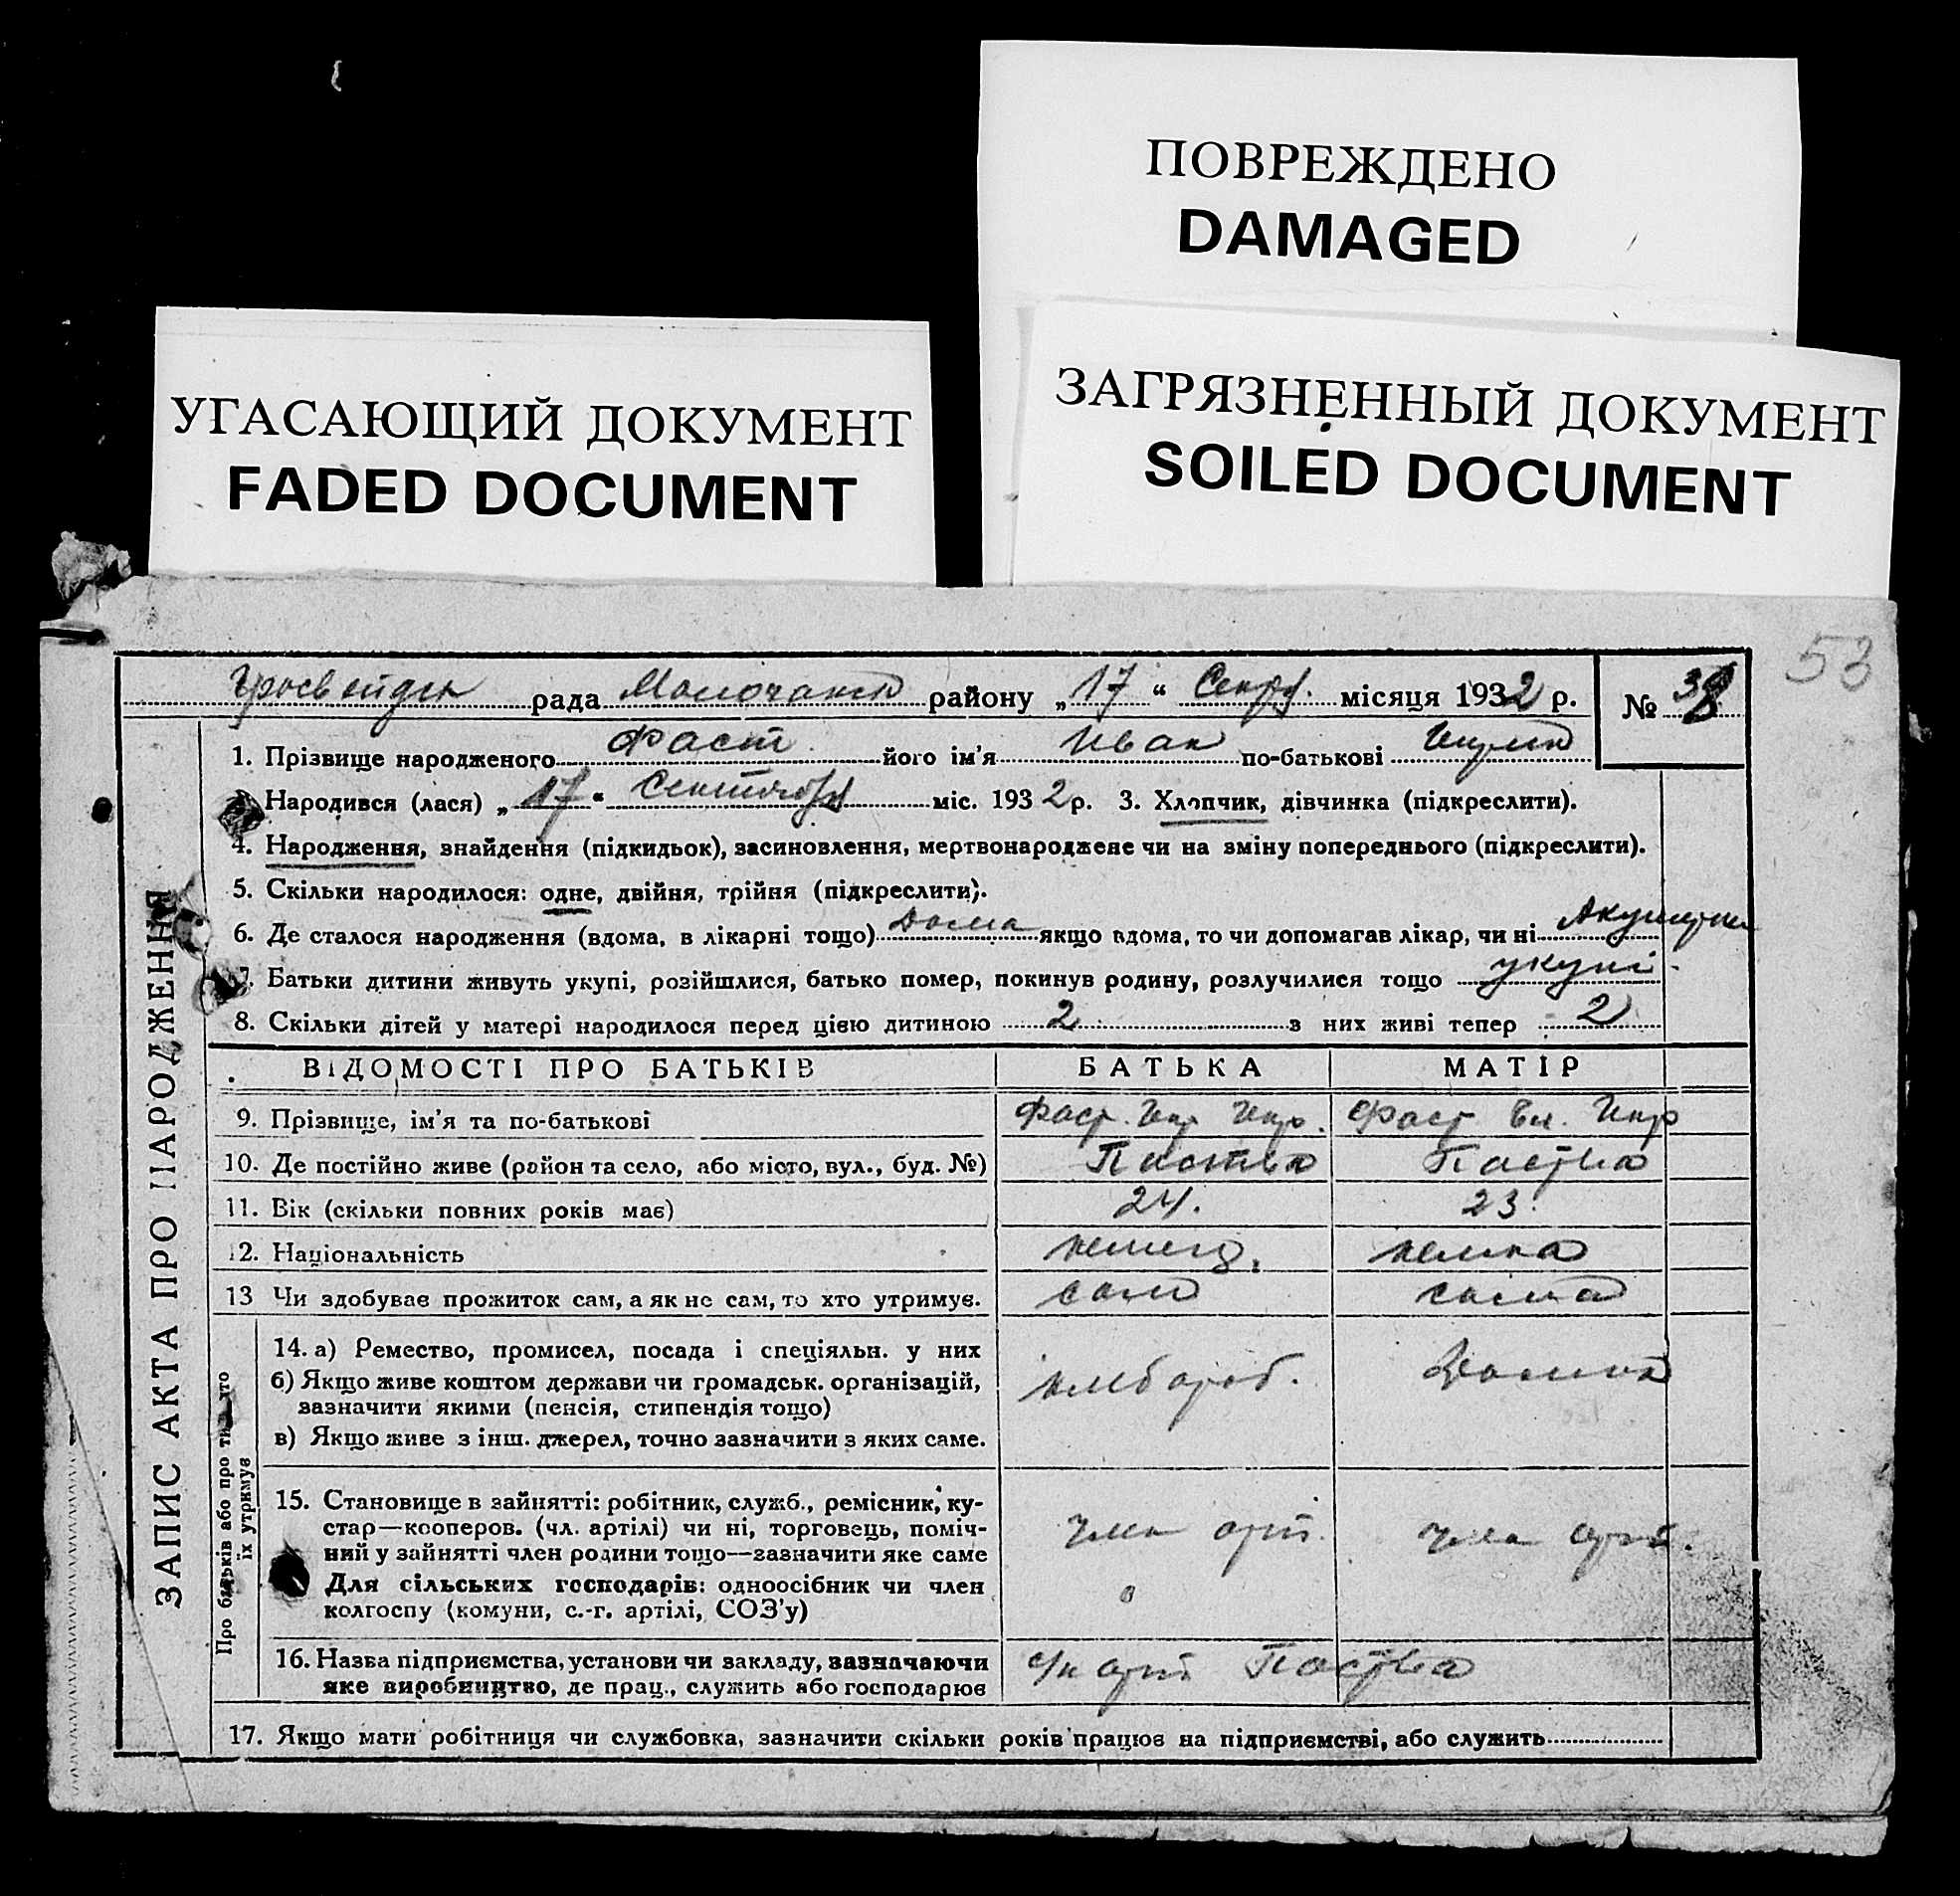 ПОВРЕЖДЕНО
DAMAGED
УГАСАЮЩИЙ ДОКУМЕНТ
FADED DOCUMENT
ЗАГРЯЗНЕННЫЙ ДОКУМЕНТ
SOILED DOCUMENT
53
рада Молочанск району „ 17 “ місяця 1932 р.
№ 38
1. Прізвище народженого Фаст його ім'я Иван по-батькові
Народився (лася) „ 17 “ Сентября міс. 1932 р. 3. Хлопчик, дівчинка (підкреслити).
4. Народження, знайдення (підкидьок), засиновлення, мертвонароджене чи на зміну попереднього (підкреслити).
5. Скільки народилося: одне, двійня, трійня (підкреслити).
6. Де сталося народження (вдома, в лікарні тощо) Дома якщо вдома, то чи допомагав лікар, чи ні
7. Батьки дитини живуть укупі, розійшлися, батько помер, покинув родину, розлучилися тощо укупі
8. Скільки дітей у матері народилося перед цією дитиною 2 з них живі тепер 2
ВІДОМОСТІ ПРО БАТЬКІВ БАТЬКА МАТІР
9. Прізвище, ім'я та по-батькові Фаст Фаст
10. Де постійно живе (район та село, або місто, вул., буд. №) Паства Паства
11. Вік (скільки повних років має) 24. 23.
12. Національність немец. немка
13 Чи здобуває прожиток сам, а як не сам, то хто утримує. сам сама
14. а) Ремество, промисел, посада і спеціяльн. у них
б) Якщо живе коштом держави чи громадськ. організацій,
зазначити якими (пенсія, стипендія тощо)
в) Якщо живе з інш. джерел, точно зазначити з яких саме.
15. Становище в зайнятті: робітник, служб., ремісник, ку-
стар—кооперов. (чл. артілі) чи ні, торговець, поміч-
ний у зайнятті член родини тощо—зазначити яке саме
член арт. член арт.
Для сільських господарів: одноосібник чи член
колгоспу (комуни, с.-г. артілі, СОЗ'у)
16. Назва підприємства, установи чи закладу, зазначаючи
яке виробництво, де прац., служить або господарює
арт Паства
17. Якщо мати робітниця чи службовка, зазначити скільки років працює на підприємстві, або служить
ЗАПИС АКТА ПРО НАРОДЖЕННЯ
Про батьків або про тих, хто
їх утримує